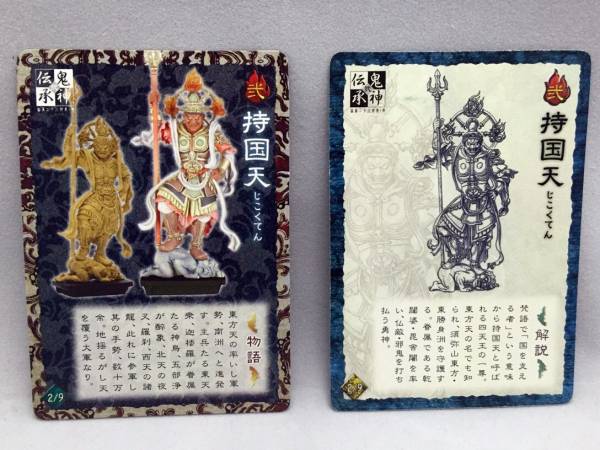 鬼神
伝承
弐
持国天
じこくてん
物語
東方天の率いし軍
勢、南洲へと進発
す。主兵たる東天
衆、迦楼羅が眷属
たる神鳥、五部浄
が酔象、北天の夜
叉、羅刹、西天の諸
龍、此れに参軍し
其の手勢、数十万
余。地揺るがし天
を覆う大軍なり。
2/9
鬼神
伝承
弐
持国天
じこくてん
解説
梵語で、「国を支え
る者」という意味
から持国天と呼ば
れる四天王の一尊。
東方天の名でも知
られ、須弥山東方・
東勝身洲を守護す
る。眷属である乾
闥婆・毘舎闍を率
い、仏敵・邪鬼を打ち
払う勇神。